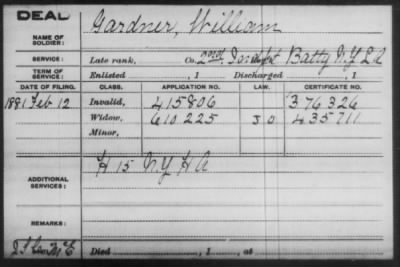 DEAD
NAME OF SOLDIER: Gardner, William
SERVICE: Late rank, Co. 32nd Indpt Batty N.Y. L A
TERM OF SERVICE: Enlisted , 1 Discharged , 1
DATE OF FILING. CLASS. APPLICATION NO. LAW. CERTIFICATE NO.
1881 Feb 12 Invalid, 415806 376326
Widow, 610225 435711
Minor,
ADDITIONAL SERVICES: H 15 N.Y. H A
REMARKS:
Died , 1 , at